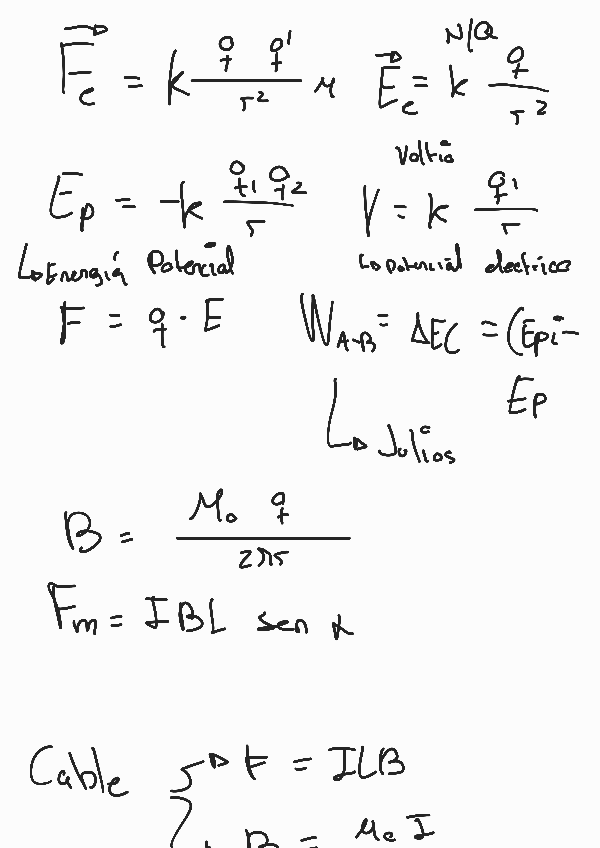 F⃗e = k q q' / r² μ
N/Q
E⃗e = k q / r²
Ep = -k q1 q2 / r
Voltio
V = k q1 / r
↳ Energía Potencial
↳ potencial electrico
F = q · E
W A-B = ΔEC = (Epi - Ep
↳ Julios
B = μ0 q / 2πr
Fm = I B L sen α
Cable { → F = ILB
→ B = μ0 I